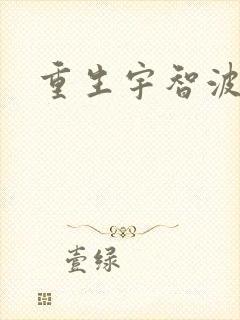 重生宇智波
壹绿